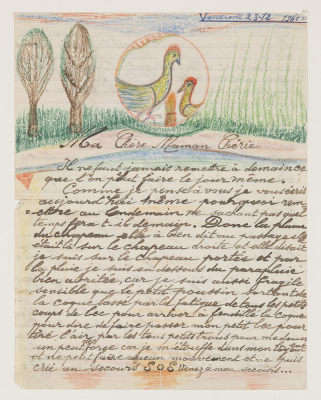 Vendredi 23-12 1960
Ma Chère Maman Chérie
Il ne faut jamais remettre à demain ce
que l'on peut faire le jour même.
Comme je pense à vous je vous écris
aujourd'hui même pourquoi rem
ettre au lendemain ne sachant pas quel
temps fera t-il demain. Donc la plume
du chapeau elle a bien dit au passage elle
était là sur le chapeau droite et elle disait
je suis sur le chapeau portée et par
la pluie je suis en dessous du parapluie
bien abritée, car je suis aussi fragile
sensible que le petit poussin sortant de
la coque lassé par la fatigue de tous les petits
coups de bec pour arriver à fendille la coque
pour dire de faire passer mon petit bec pour
tiré l'air par les tous petits trous pour me donner
un peu forge car je m'étouffe dans mon
et ne peut faire aucun mouvement et ne puis
crié au secours S O S Venez à mon secours...